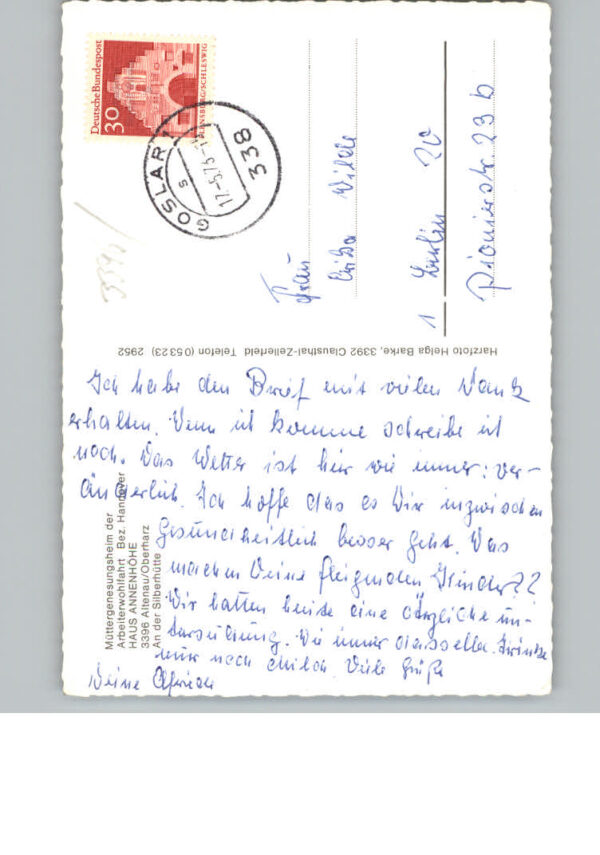 Deutsche Bundespost
30
FLENSBURG/SCHLESWIG
GOSLAR 1
17.-5.73-1
s
338
3392/
Frau
Wilke
1 Berlin 20
Pionierstr. 23 b
Harzfoto Helga Barke, 3392 Clausthal-Zellerfeld Telefon (05323) 2952
Ich habe den Brief mit vielen Dank
erhalten. Wenn ich komme schreibe ich
noch. Das Wetter ist hier wie immer: ver-
änderlich. Ich hoffe das es Dir inzwischen
Gesundheitlich besser geht. Was
machen Deine fleigenden Kinder??
Wir hatten heute eine ärzliche un-
tersuchung. Wie immer dasselbe. Trinke
nur noch Milch Viele Grüße
Deine
Müttergenesungsheim der
Arbeiterwohlfahrt Bez. Hannover
HAUS ANNENHÖHE
3396 Altenau/Oberharz
An der Silberhütte